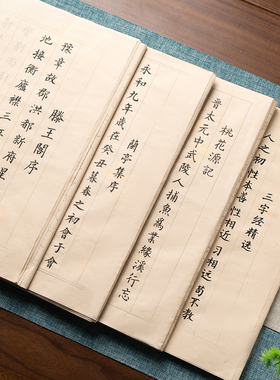 三字经精选
人之初性本善性相近习相远苟不教
桃花源記
晉太元中武陵人捕魚為業緣溪行忘
蘭亭集序
永和九年歲在癸丑暮春之初會于會
滕王閣序
豫章故郡洪都新府星
地接衡廬襟三